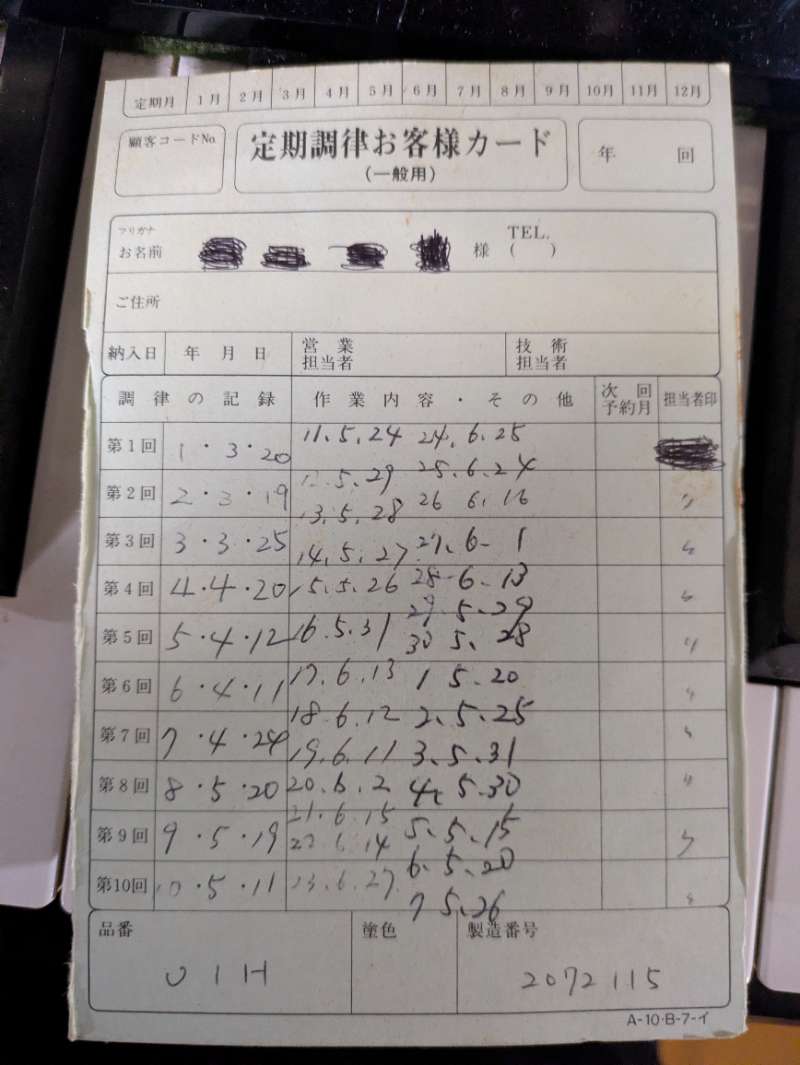 定期月 1月 2月 3月 4月 5月 6月 7月 8月 9月 10月 11月 12月
顧客コードNo.
定期調律お客様カード
(一般用)
年 回
フリガナ
お名前 様 TEL. ( )
ご住所
納入日 年 月 日 営業担当者 技術担当者
調律の記録 作業内容・その他 次回予約月 担当者印
第1回 1・3・20 11.5.24 24.6.25
25.6.24
第2回 2・3・19 12.5.29 26 6.16
13.5.28
第3回 3・3・25 14.5.27 27.6-1
第4回 4・4・20 15.5.26 28-6-13
29.5.29
第5回 5・4・12 16.5.31 30 5.28
第6回 6・4・11 17.6.13 1 5.20
18.6.12 2.5.25
第7回 7・4・24 19.6.11 3.5.31
第8回 8・5・20 20.6.2 4.5.30
21.6.15
第9回 9・5・19 22.6.14 5.5.15
6.5.20
第10回 10・5・11 23.6.27
7 5.26
品番 塗色 製造番号
U1H 2072115
A-10・B-7-イ